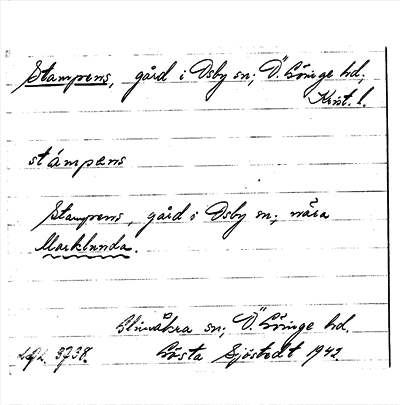 Stampens, gård i Osby sn; Ö. Göinge hd,
Krist. l.
stámpens
Stampens, gård i Osby sn; nära
Marklunda.
Glimåkra sn; V. Göinge hd.
Gösta Sjöstedt 1942.
3738.